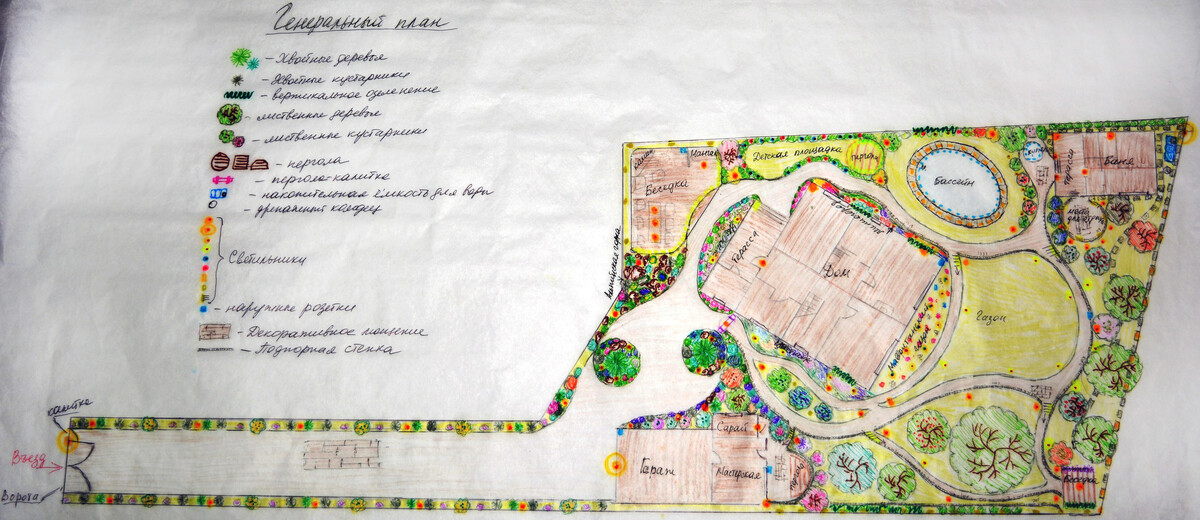 Генеральный план
- Хвойные деревья
- Хвойные кустарники
- вертикальное озеленение
- лиственные деревья
- лиственные кустарники
- пергола
- пергола-калитка
- накопительная ёмкость для воды
- дренажный колодец
Светильники
- наружные розетки
- Декоративное мощение
- Подпорная стенка
Мангал
Беседка
Детская площадка
Бассейн
терасса
Баня
Терасса
Дом
Газон
альпийская горка
калитка
Въезд
Ворота
Гараж
Сарай
Мастерская
Беседка